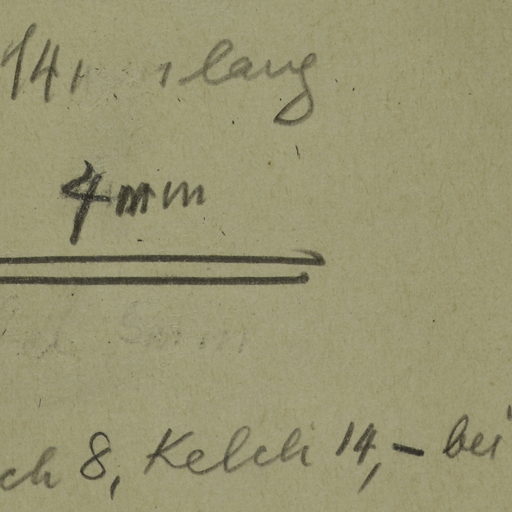 14, lang
4 mm
ch 8, Kelch 14,– bei